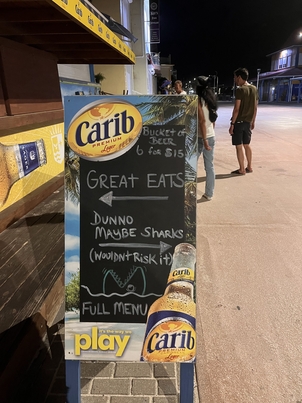 Carib
PREMIUM
Lager
BUCKET OF
BEER
6 FOR $15
GREAT EATS
DUNNO
MAYBE SHARKS
(WOULDNT RISK IT)
FULL MENU
Carib
Carib
it's the way we
play